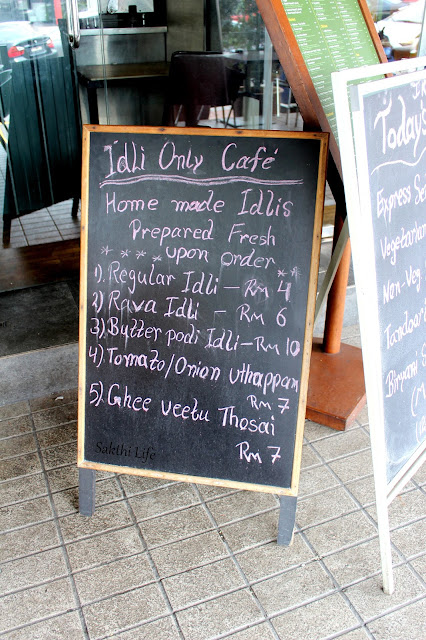 Idli Only Café
Home made Idlis
Prepared Fresh
* * * * upon order * *
1). Regular Idli - RM 4
2) Rava Idli - RM 6
3). Butter podi Idli - RM 10
4) Tomato/Onion uthappam
RM 7
5). Ghee veetu Thosai
RM 7
Sakthi Life
Today's
Express Se
Vegetarian
Non-Veg
Tandoor
Biryani S
(M